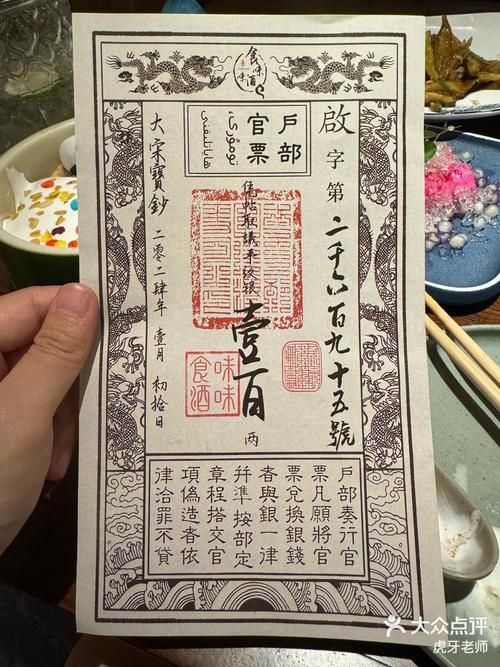 戶部
官票
啟字第二千六百九十五號
取議平紋銀
壹百两
味味
食酒
大宋寶鈔 二零二肆年 壹月 初拾日
戶部奏行官
票凡願將官
票兌換銀錢
者與銀一律
幷準按部定
章程搭交官
項偽造者依
律治罪不貸
大众点评
虎牙老师